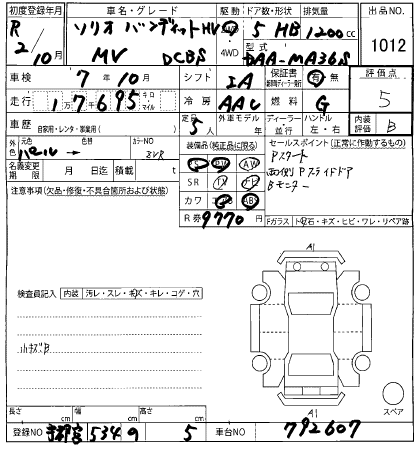 初度登録年月 車名・グレード 駆動 ドア数・形状 排気量 出品NO.
R 2/10月 ソリオ バンディット HV 2WD 5 HB 1200 cc 1012
MV DCBS 4WD 型式 DAA-MA36S
車検 7年10月 シフト IA 保証書 有 無 評価点
走行 1万7695 キロ マイル 冷房 AAC 燃料 G 5
車歴 自家用・レンタ・事業用( ) 定員 5人 外車モデル 年 ディーラー 並行 ハンドル 左・右 内装評価 B
外色 元色 色替 カラーNO 装備品(純正品に限る) セールスポイント(正常に作動するもの)
パール → ZVR PS PW AW Pスタート
名義変更期限 月 日迄 積載 t SR ナビ 両側Pスライドドア
注意事項(欠品・修復・不具合箇所および状態) カワ エアB ABS Bモニター
R券 9770円 Fガラス トビ石・キズ・ヒビ・ワレ・リペア跡
A1
検査員記入 内装 汚レ・スレ・キズ・キレ・コゲ・穴
小キズB
A1
スペア
長さ cm 幅 cm 高さ cm
登録NO 534 9 5 車台NO 792607